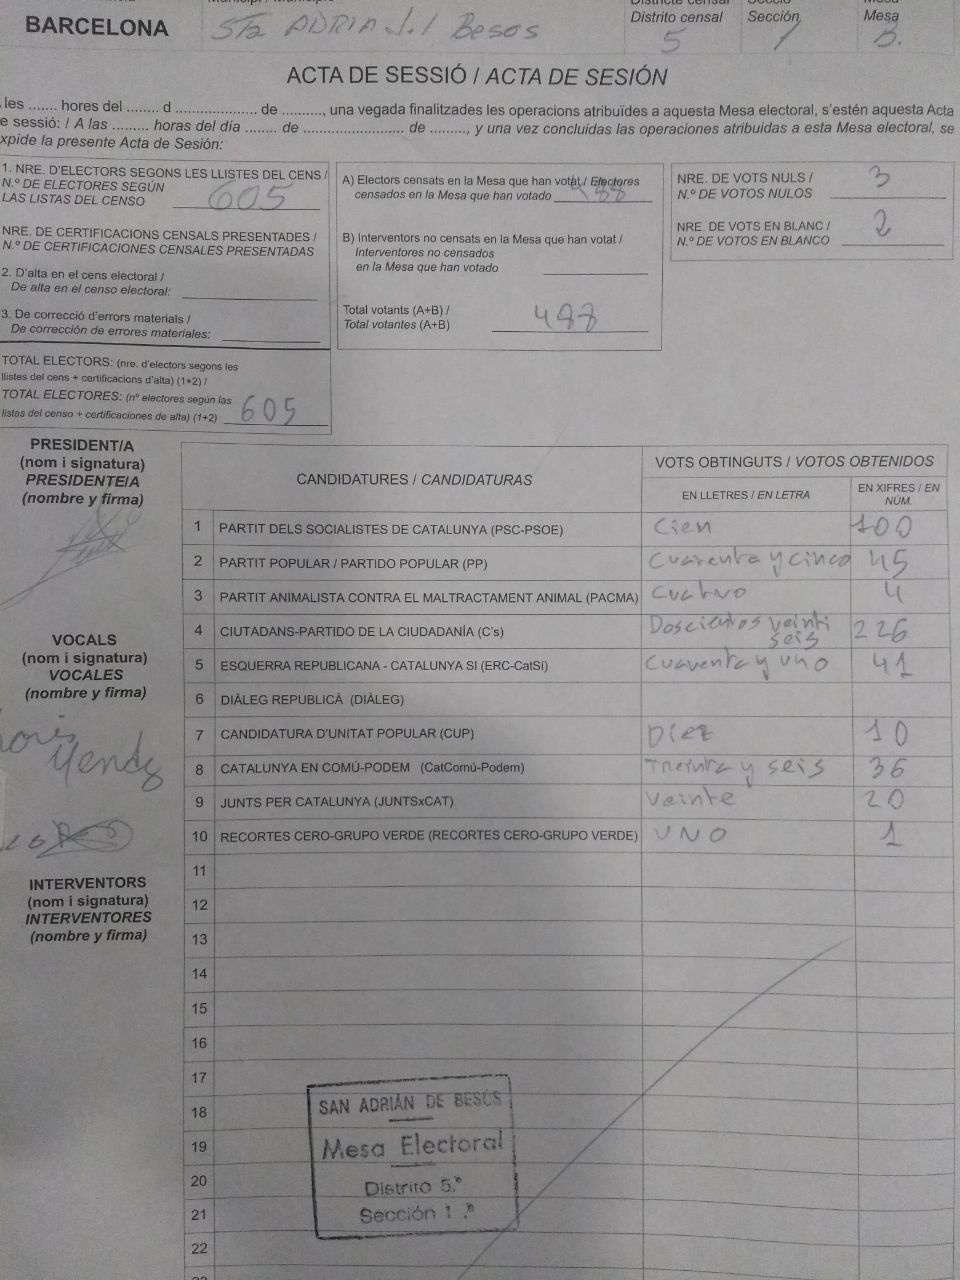 BARCELONA
Sta ADRIA d.l Besos
Districte censal
Distrito censal
5
Secció
Sección
1
Mesa
Mesa
B.
ACTA DE SESSIÓ / ACTA DE SESIÓN
les ....... hores del ........ d .................... de .........., una vegada finalitzades les operacions atribuïdes a aquesta Mesa electoral, s'estén aquesta Acta
e sessió: / A las ......... horas del día ........ de ......................... de ........., y una vez concluidas las operaciones atribuidas a esta Mesa electoral, se
xpide la presente Acta de Sesión:
1. NRE. D'ELECTORS SEGONS LES LLISTES DEL CENS /
N.º DE ELECTORES SEGÚN
LAS LISTAS DEL CENSO 605
NRE. DE CERTIFICACIONS CENSALS PRESENTADES /
N.º DE CERTIFICACIONES CENSALES PRESENTADAS
2. D'alta en el cens electoral /
De alta en el censo electoral:
3. De correcció d'errors materials /
De corrección de errores materiales:
TOTAL ELECTORS: (nre. d'electors segons les
llistes del cens + certificacions d'alta) (1+2) /
TOTAL ELECTORES: (nº electores según las
listas del censo + certificaciones de alta) (1+2) 605
A) Electors censats en la Mesa que han votat / Electores
censados en la Mesa que han votado 488
B) Interventors no censats en la Mesa que han votat /
Interventores no censados
en la Mesa que han votado
Total votants (A+B) /
Total votantes (A+B) 488
NRE. DE VOTS NULS /
N.º DE VOTOS NULOS 3
NRE. DE VOTS EN BLANC /
N.º DE VOTOS EN BLANCO 2
PRESIDENT/A
(nom i signatura)
PRESIDENTE/A
(nombre y firma)
VOCALS
(nom i signatura)
VOCALES
(nombre y firma)
INTERVENTORS
(nom i signatura)
INTERVENTORES
(nombre y firma)
CANDIDATURES / CANDIDATURAS
VOTS OBTINGUTS / VOTOS OBTENIDOS
EN LLETRES / EN LETRA
EN XIFRES / EN
NÚM.
1 PARTIT DELS SOCIALISTES DE CATALUNYA (PSC-PSOE) Cien 100
2 PARTIT POPULAR / PARTIDO POPULAR (PP) Cuarenta y cinco 45
3 PARTIT ANIMALISTA CONTRA EL MALTRACTAMENT ANIMAL (PACMA) Cuatro 4
4 CIUTADANS-PARTIDO DE LA CIUDADANÍA (C's) Doscientos veinti seis 226
5 ESQUERRA REPUBLICANA - CATALUNYA SI (ERC-CatSí) Cuarenta y uno 41
6 DIÀLEG REPUBLICÀ (DIÀLEG)
7 CANDIDATURA D'UNITAT POPULAR (CUP) Diez 10
8 CATALUNYA EN COMÚ-PODEM (CatComú-Podem) Treinta y seis 36
9 JUNTS PER CATALUNYA (JUNTSxCAT) Veinte 20
10 RECORTES CERO-GRUPO VERDE (RECORTES CERO-GRUPO VERDE) UNO 1
11
12
13
14
15
16
17
18
19
20
21
22
SAN ADRIÁN DE BESÓS
Mesa Electoral
Distrito 5.º
Sección 1.ª